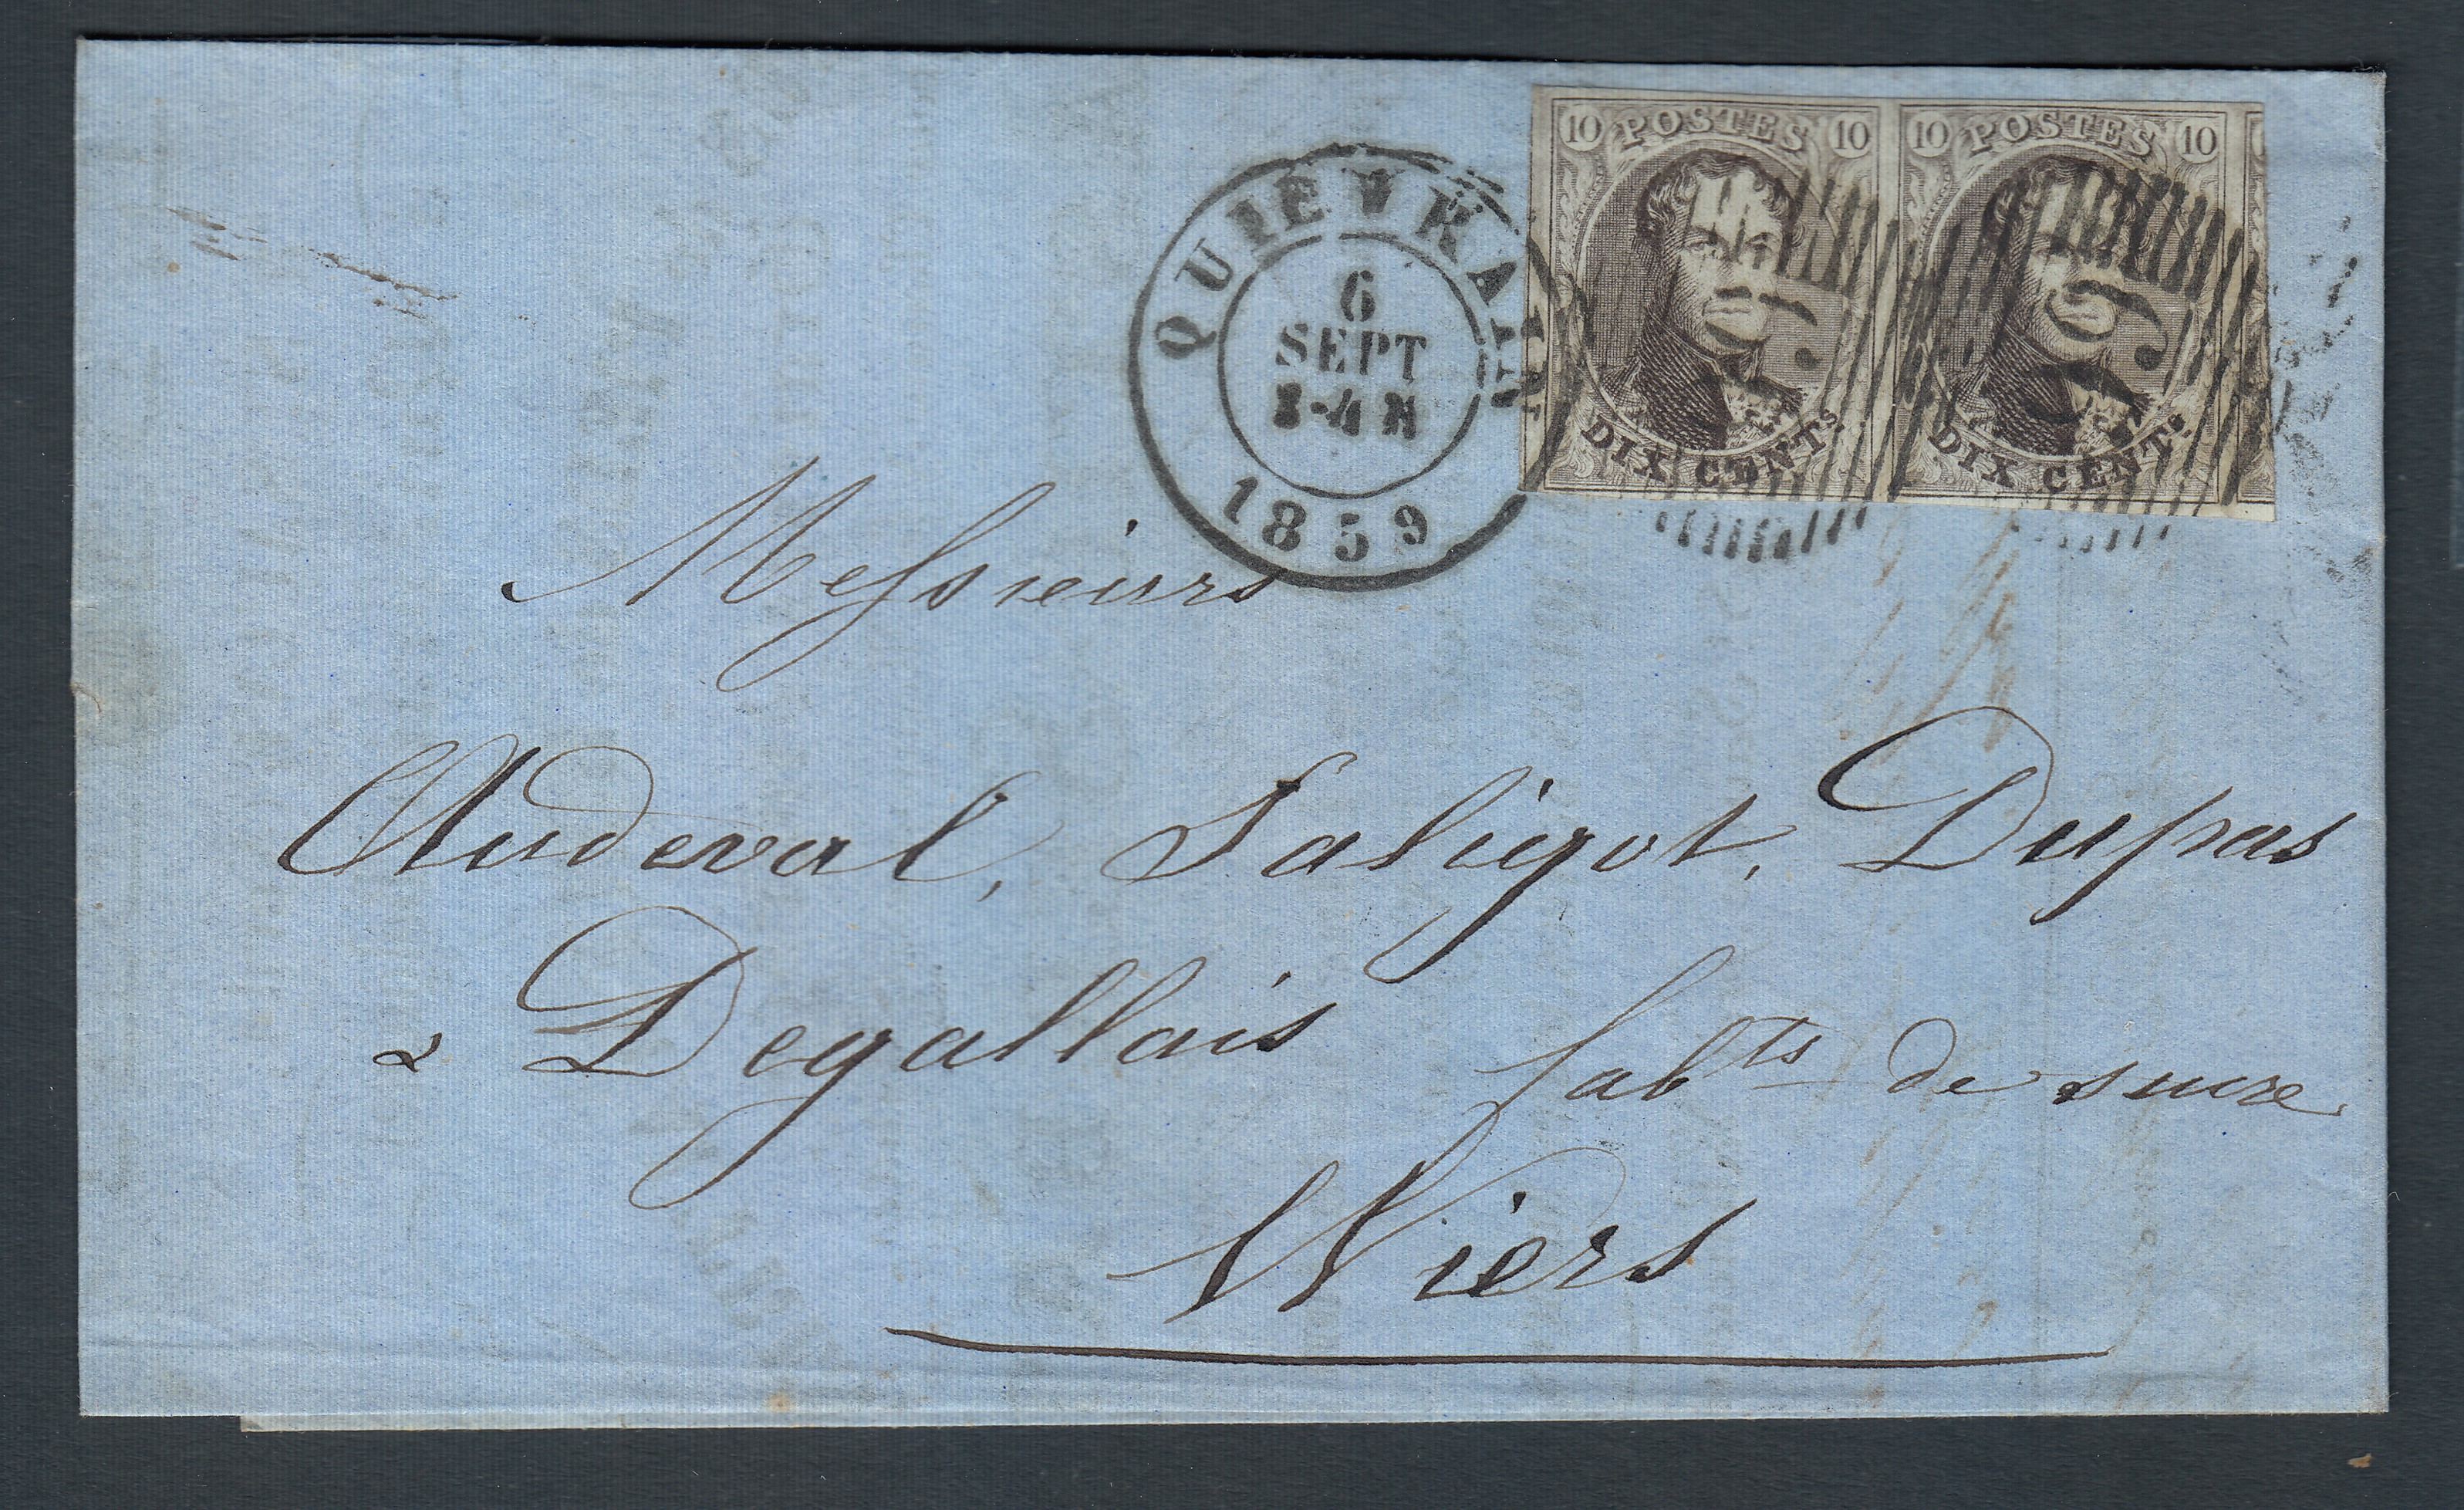 10 POSTES 10
10 POSTES 10
DIX CENTS
DIX CENTS
QUIEVRAIN
6
SEPT
1859
Messieurs
Audeval, Saligot, Dupas
& Degallais fabts de sucre
Wiers